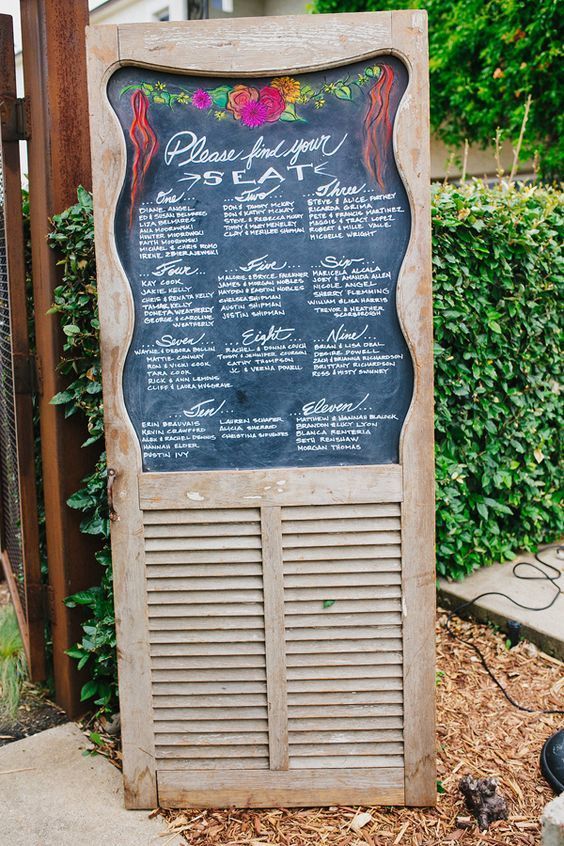 Please find your
SEAT
One...
DIANE ANGEL
ED & SUSAN BELVARES
LISA BELVARES
ANA MIODROWSKI
HUNTER MIODROWSKI
FAITH MIODROWSKI
MICHAEL & CHRIS ROMO
IRENE
Two...
DON & TOMMY MCKAY
DON & KATHY MCKAY
STEVE & REBECCA MCKAY
TOM & MARY MENELEY
CLAY & MERILEE SHIPMAN
Three...
STEVE & ALICE FORTNEY
RICARDA GRIMA
PETE & FRANCIS MARTINEZ
MAGGIE & TRACY LOPEZ
ROBERT & MILLE VALLE
MICHELLE WRIGHT
Four...
KAY COOK
JAKIE KELLY
CHRIS & RENATA KELLY
TALMAE KELLY
DONETA WEATHERLY
GEORGE & CAROLINE
WEATHERLY
Five...
MALORIE & BRYCE FAULKNER
JAMES & MORGAN NOBLES
HAYDEN & EASTON NOBLES
CHELSEA SHIPMAN
AUSTIN SHIPMAN
JUSTIN SHIPMAN
Six...
MARICELA ALCALA
JOEY & AMANDA ALLEN
NICOLE ANGEL
SHERRY FLEMMING
WILLIAM & LISA HARRIS
TREVOR & HEATHER
SCARBOROUGH
Seven...
WAYNE & DEBORA BOLLIN
MATTIE CONWAY
RON & VICKI COOK
TARA COOK
RICK & ANN LEMING
CLIFF & LAURA MUSGRAVE
Eight...
RACHEL & DONNA COUCH
TOMMY & JENNIFER
CATHY THOMPSON
JC & VERNA POWELL
Nine...
BRIAN & LISA DEAL
DESIREE POWELL
ZACH & BRIANNA RICHARDSON
BRITTANY RICHARDSON
ROSS & MISTY SWINNEY
Ten...
ERIN BEAUVAIS
KEVIN CRAWFORD
ALEX & RACHEL DENNIS
HANNAH ELDER
DUSTIN IVY
LAUREN SCHAFER
ALICIA SHERROD
CHRISTINA SIFUENTES
Eleven...
MATTHEW & HANNAH BLALOCK
BRANDON & LUCY LAYTON
BLANCA RENTERIA
SETH RENSHAW
MORGAN THOMAS